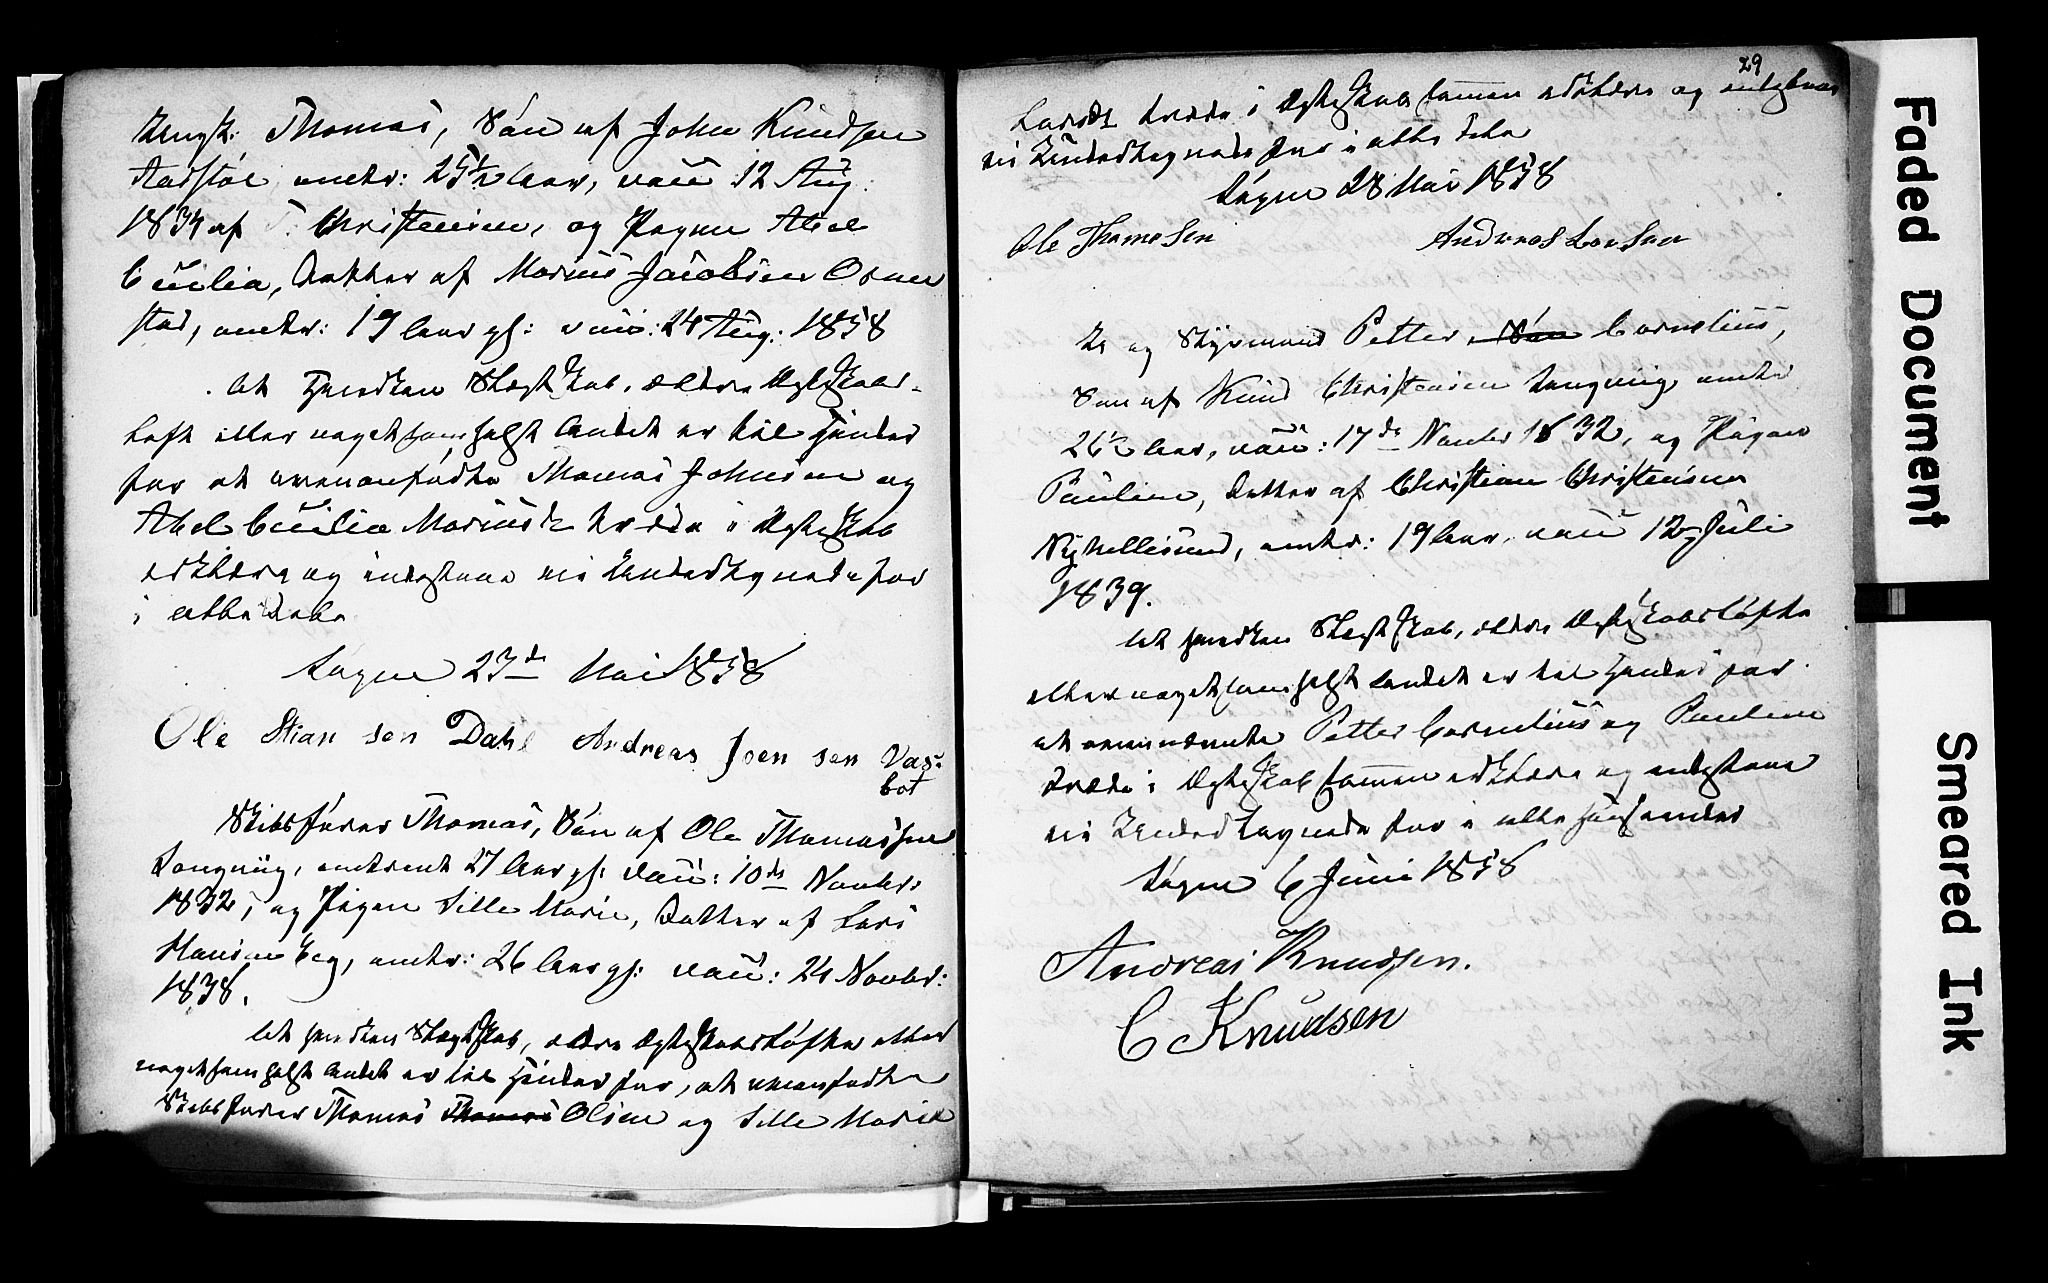 Ungk: Thomas, Søn af John Knudsen
Aarstøl, omtr: 25½ Aar, vacc 12 Aug:
1834 af T. Christensen, og Pigen Abel
Cecilia, Datter af Marius Jacobsen
stad, omtr: 19 Aar gl: vacc: 24 Aug: 1858
At hverken Slægtskab, ældre Ægteskabs-
løfte eller noget somhelst Andet er til Hinder
for at ovenanførte Thomas Johnsen og
Abel Cecilia Mariusd: træde i Ægteskab
erklære og indestaae vi Undertegnede for
i alle Dele
Søgne 23de Mai 1858
Ole Stian sen Dahl Andreas Joen sen Vas-
bot
Skibsfører Thomas, Søn af Ole Thomassen
Langvig, omtrent 27 Aar gl: vacc: 10de Novbr:
1832, og Pigen Sille Marie, Datter af Lars
Hansen Eeg, omtr: 26 Aar gl: vacc: 24 Novbr:
1838.
At hverken Slægtskab, ældre Ægteskabsløfte eller
noget somhelst Andet er til Hinder for, at ovenanførte
Skibsfører Thomas Thomas Olsen og Sille Marie
29
Larsd: træde i Ægteskab sammen erklære og indestaae
vi Undertegnede for i alle Dele
Søgne 28 Mai 1858
Ole Thomesen Andreas Larsen
Ek og Styrmand Petter Søn Cornelius,
Søn af Knud Christensen Langvig, omtr
26½ Aar, vacc: 17de Novbr 1832, og Pigen
Pauline, Datter af Christian Christensen
Ny Hellesund, omtr: 19 Aar, vacc 12 Juli
1839.
At hverken Slægtskab, ældre Ægteskabsløfte
eller noget somhelst Andet er til Hinder for
at ovennævnte Petter Cornelius og Pauline
træde i Ægteskab sammen erklære og indestaae
vi Undertegnede for i alle Henseender
Søgne 6 Juni 1858
Andreas Knudsen.
C Knudsen
Faded Document
Smeared Ink